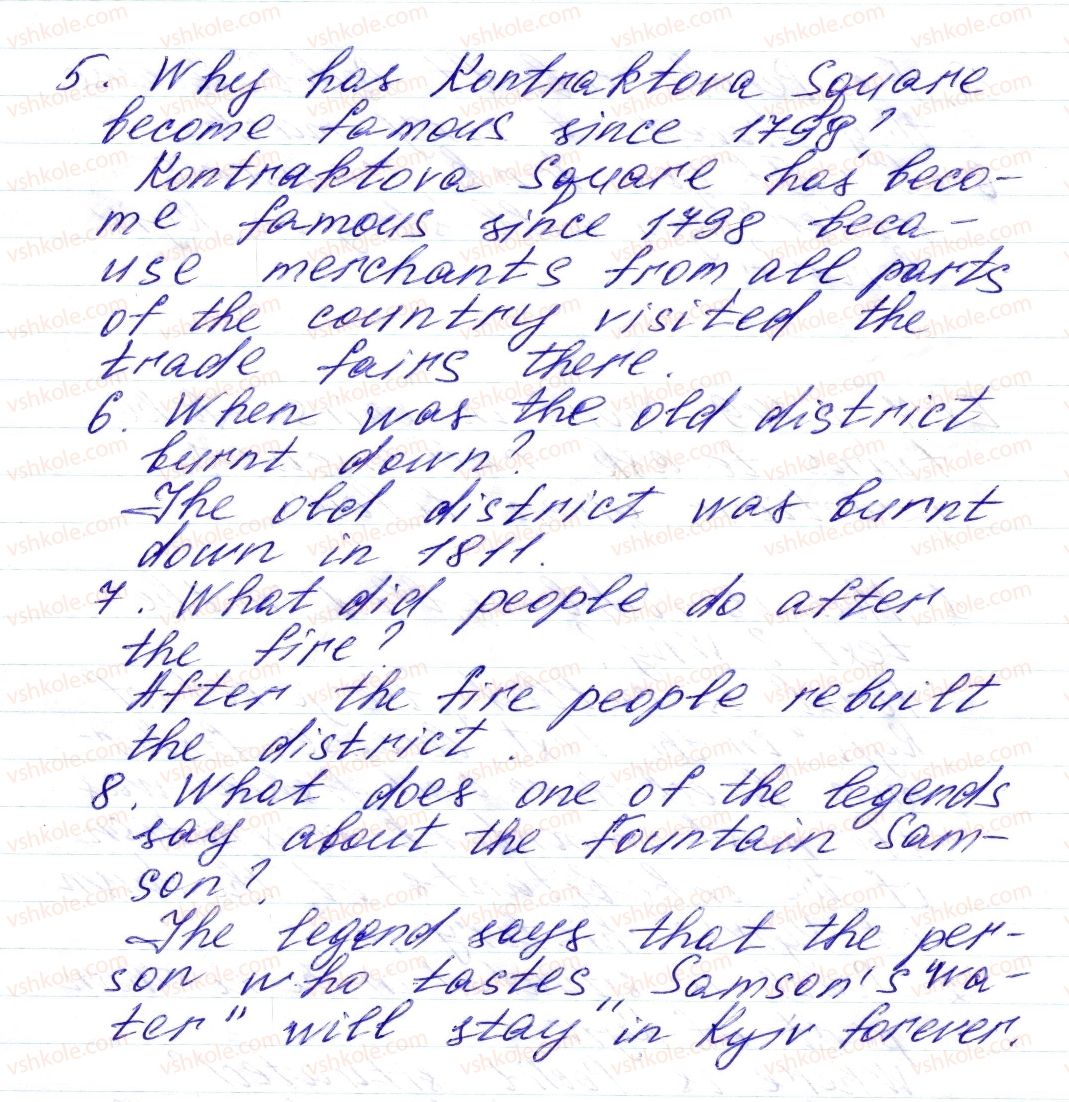 5. Why has Kontraktova Square
become famous since 1798?
Kontraktova Square has beco-
me famous since 1798 beca-
use merchants from all parts
of the country visited the
trade fairs there.
6. When was the old district
burnt down?
The old district was burnt
down in 1811.
7. What did people do after
the fire?
After the fire people rebuilt
the district.
8. What does one of the legends
say about the Fountain Sam-
son?
The legend says that the per-
son who tastes „Samson's wa-
ter" will stay in Kyiv forever.
vshkole.com